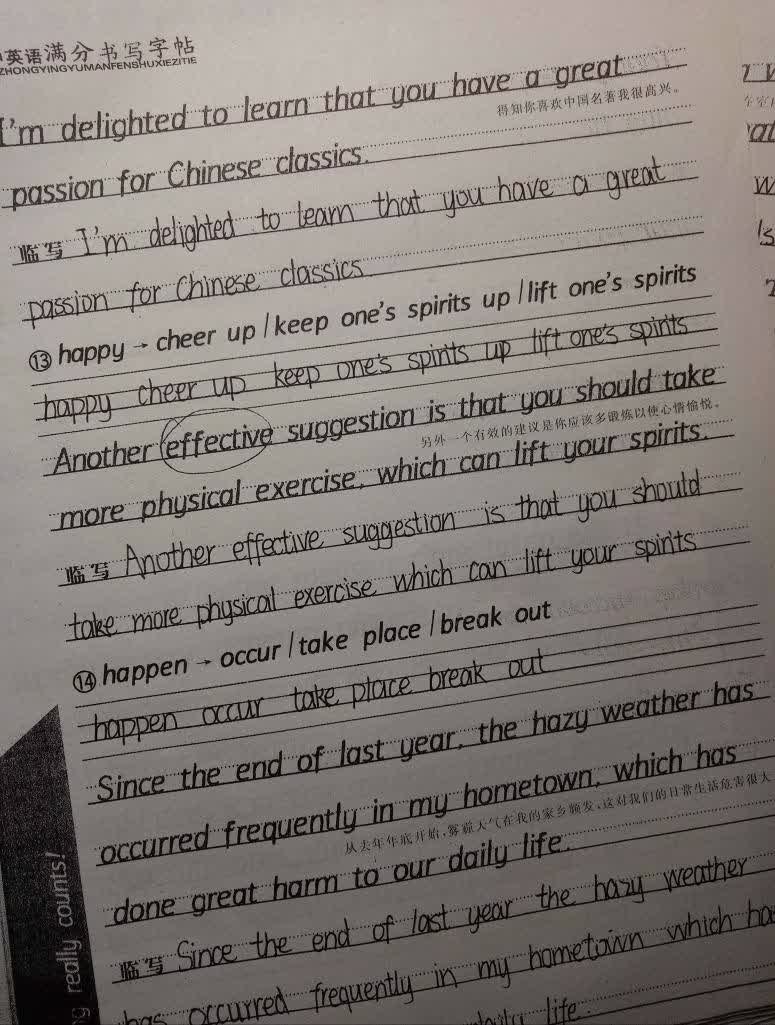 英语满分书写字帖
ZHONGYINGYUMANFENSHUXIEZITIE
I'm delighted to learn that you have a great
得知你喜欢中国名著我很高兴。
passion for Chinese classics.
临写 I'm delighted to learn that you have a great
passion for Chinese classics
⑬ happy → cheer up / keep one's spirits up / lift one's spirits
happy cheer up keep one's spirits up lift one's spirits
Another effective suggestion is that you should take
另外一个有效的建议是你应该多锻炼以使心情愉悦。
more physical exercise, which can lift your spirits.
临写 Another effective suggestion is that you should
take more physical exercise which can lift your spirits
⑭ happen → occur / take place / break out
happen occur take place break out
Since the end of last year, the hazy weather has
occurred frequently in my hometown, which has
从去年年底开始,雾霾天气在我的家乡频发,这对我们的日常生活危害很大
done great harm to our daily life.
临写 Since the end of last year the hazy weather
has occurred frequently in my hometown which
daily life.
really counts!